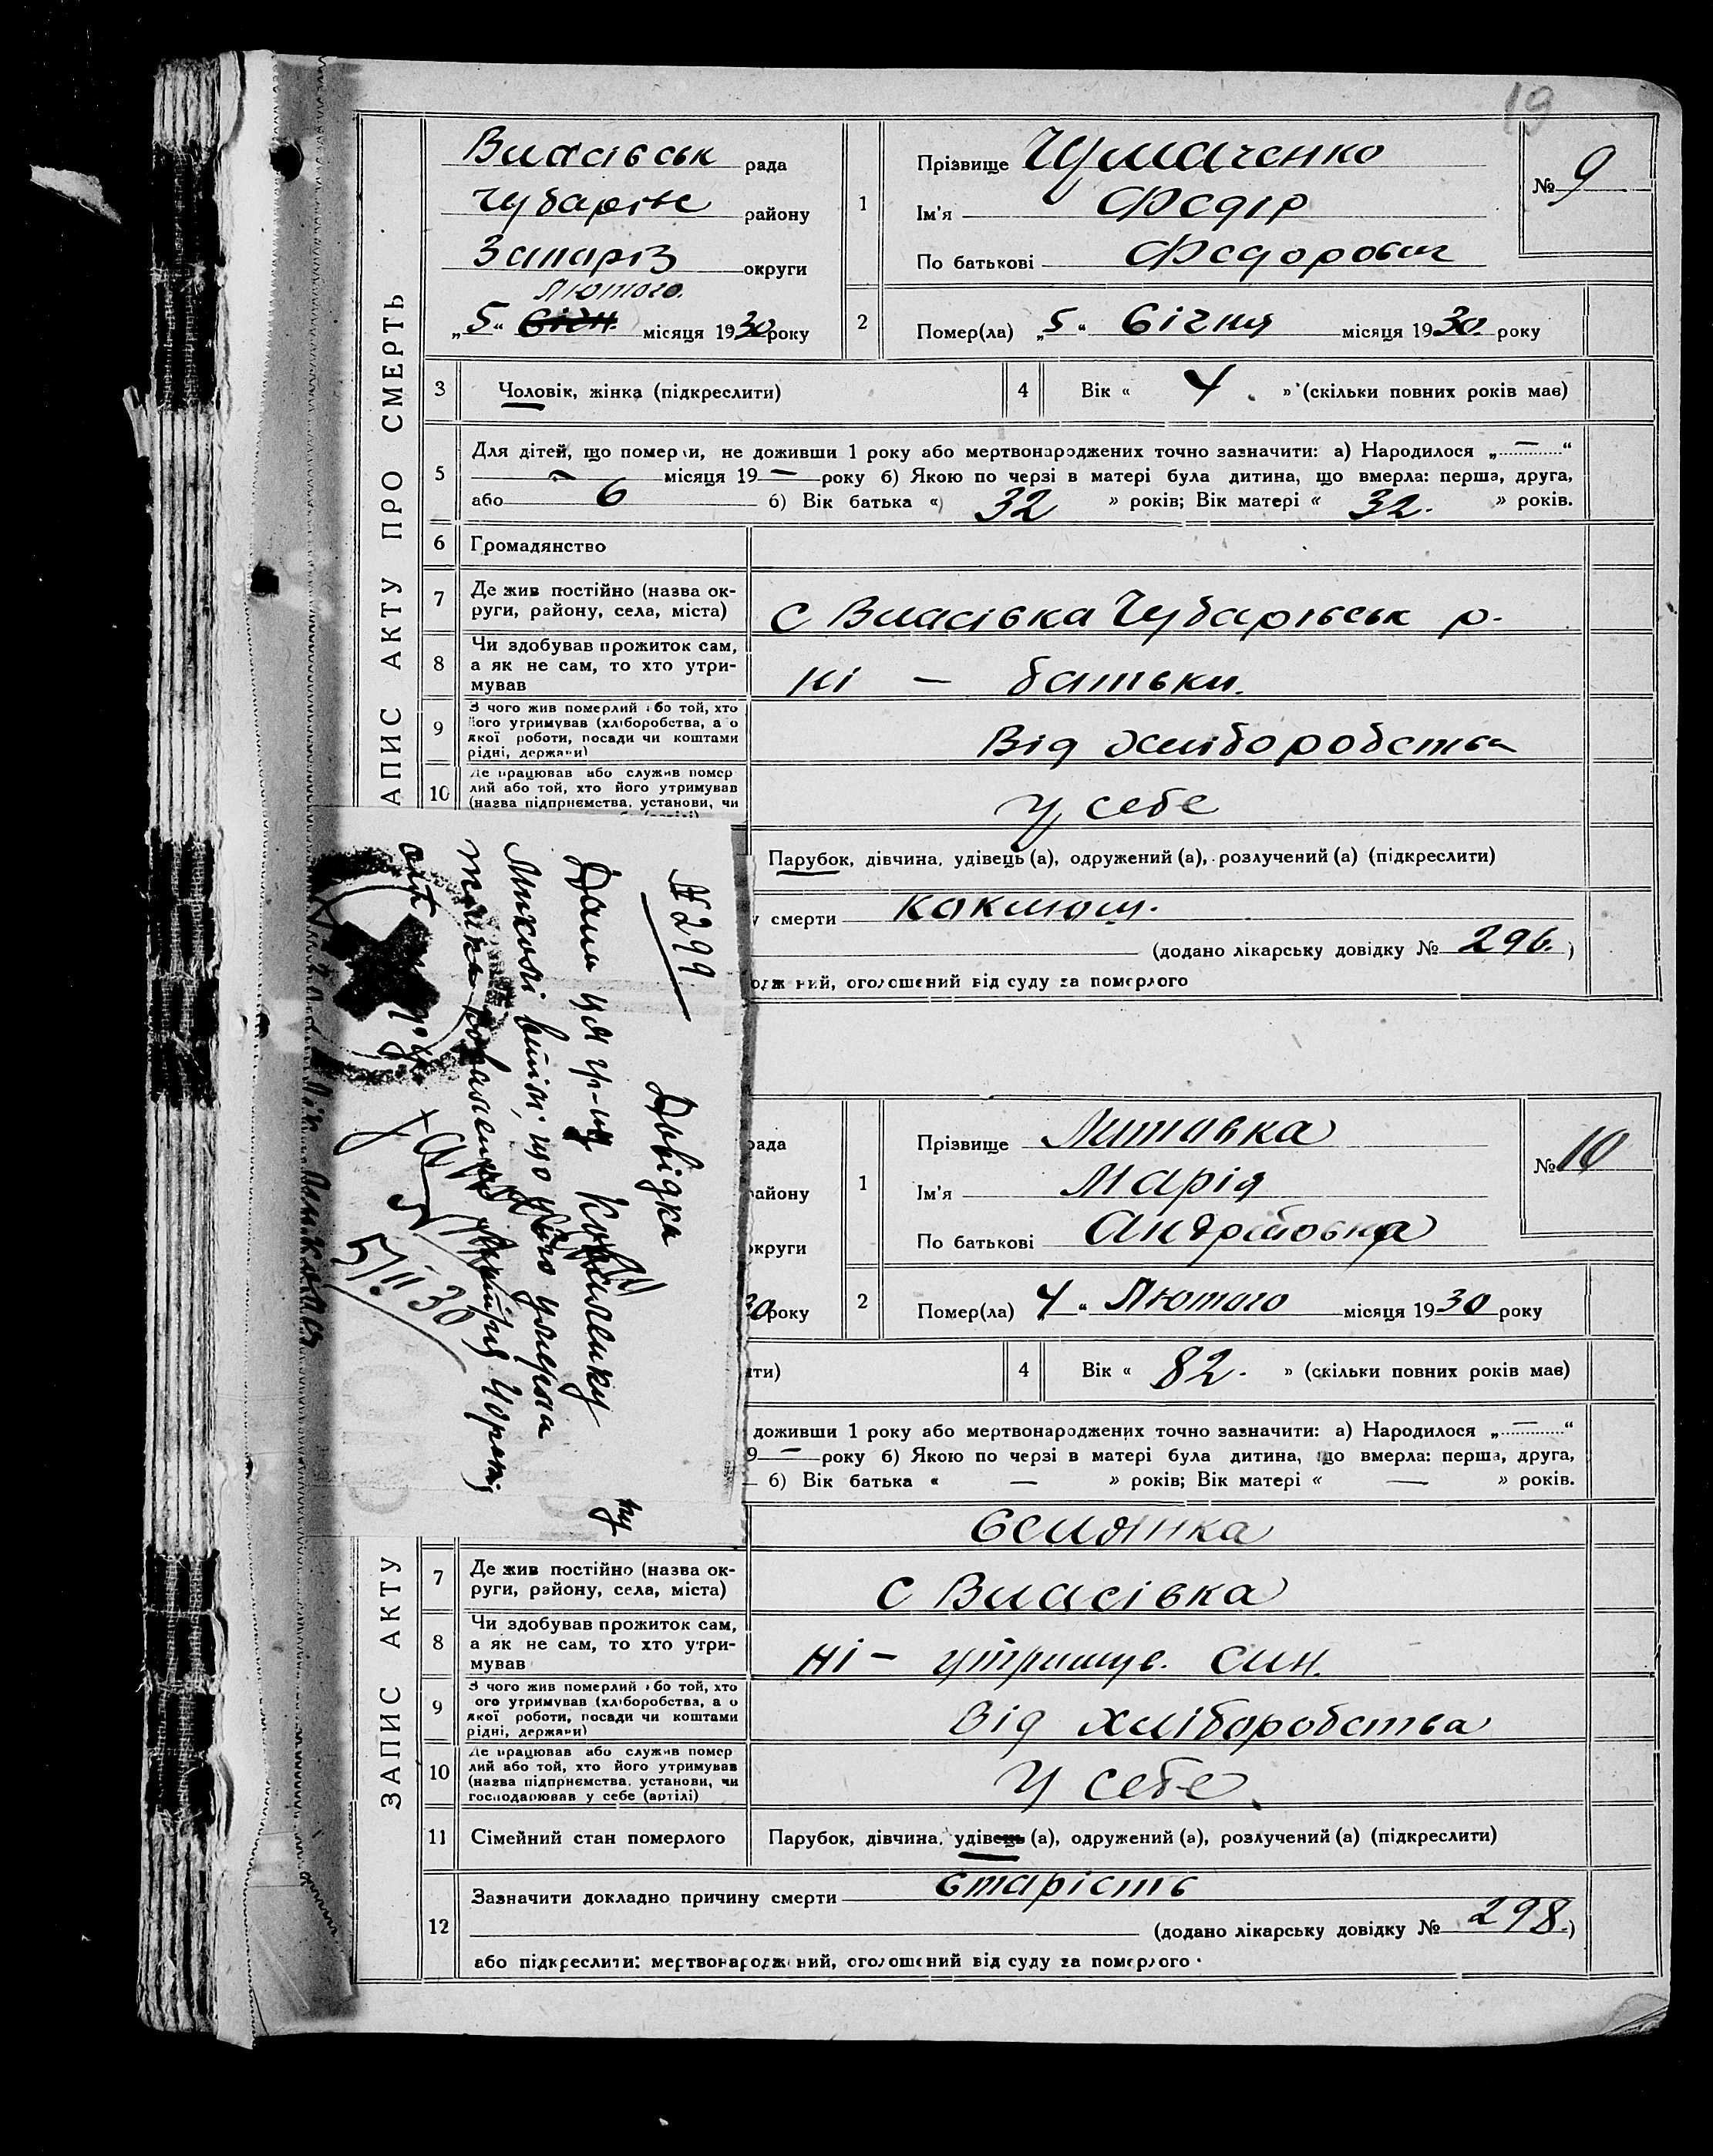 19
ЗАПИС АКТУ ПРО СМЕРТЬ
Власівськ рада
Чубарівс району
Запоріз округи
Лютого.
„5“ Січн. місяця 1930 року
1 Прізвище Чумаченко
Ім'я Федір
По батькові Федорович
№ 9
2 Помер(ла) „5“ Січня місяця 1930. року
3 Чоловік, жінка (підкреслити)
4 Вік « 4. » (скільки повних років має)
5 Для дітей, що померли, не доживши 1 року або мертвонароджених точно зазначити: а) Народилося „—“
— місяця 19— року б) Якою по черзі в матері була дитина, що вмерла: перша, друга,
або 6 б) Вік батька « 32 » років; Вік матері « 32. » років.
6 Громадянство
7 Де жив постійно (назва ок-
руги, району, села, міста)
с Власівка Чубарівськ р.
8 Чи здобував прожиток сам,
а як не сам, то хто утри-
мував
ні — батьки.
9 З чого жив померлий або той, хто
його утримував (хліборобства, а о
якої роботи, посади чи коштами
рідні, держави)
Від хліборобства
10 Де працював або служив помер
лий або той, хто його утримував
(назва підприємства, установи, чи
у себе
Парубок, дівчина, удівець (а), одружений (а), розлучений (а) (підкреслити)
у смерти коклюш.
(додано лікарську довідку № 296.)
одж ний, оголошений від суду за померлого
№ 299
Довідка
Дана ця гр-ну Коваленку
Миколі в тім, що у його умерла
5/II 30
рада
району
округи
30 року
1 Прізвище Литавка
Ім'я Марія
По батькові Андрійовна
№ 10
2 Помер(ла) 4“ Лютого місяця 1930 року
ити)
4 Вік « 82. » (скільки повних років має)
доживши 1 року або мертвонароджених точно зазначити: а) Народилося „—“
9— року б) Якою по черзі в матері була дитина, що вмерла: перша, друга,
б) Вік батька « — » років; Вік матері « — » років.
Селянка
ЗАПИС АКТУ
7 Де жив постійно (назва ок-
руги, району, села, міста)
с Власівка
8 Чи здобував прожиток сам,
а як не сам, то хто утри-
мував
ні — утримув. син.
9 З чого жив померлий або той, хто
ого утримував (хліборобства, а о
якої роботи, посади чи коштами
рідні, держави)
Від хліборобства
10 Де працював або служив помер
лий або той, хто його утримував
(назва підприємства, установи, чи
господарював у себе (артілі)
У себе.
11 Сімейний стан померлого
Парубок, дівчина, удівець (а), одружений (а), розлучений (а) (підкреслити)
12 Зазначити докладно причину смерти старість
(додано лікарську довідку № 298.)
або підкреслити: мертвонароджений, оголошений від суду за померлого